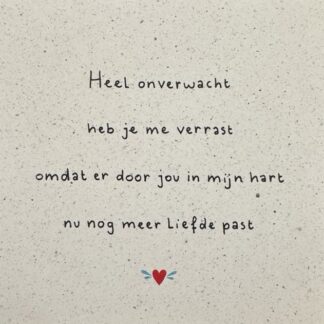 Heel onverwacht
heb je me verrast
omdat er door jou in mijn hart
nu nog meer liefde past